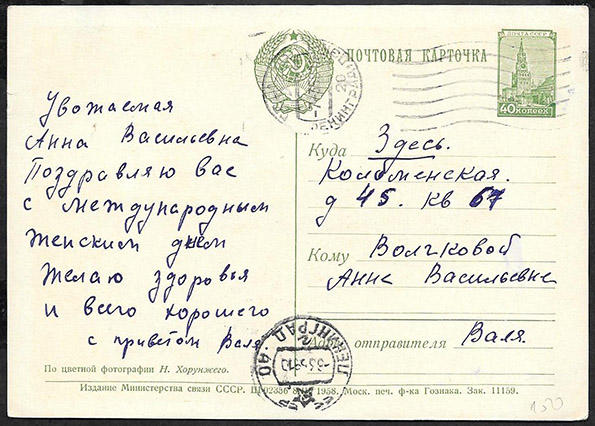 ПОЧТОВАЯ КАРТОЧКА
ПОЧТА СССР
40 КОПЕЕК
ЛЕНИНГРАД
20
Уважаемая
Анна Васильевна
Поздравляю вас
с международным
женским днем
желаю здоровья
и всего хорошего
с приветом Валя.
Куда Здесь.
Коломенская.
д 45. кв 67
Кому Волчковой
Анне Васильевне
отправителя Валя.
ЛЕНИНГРАД
По цветной фотографии Н. Хорунжего.
Издание Министерства связи СССР. 1958. Моск. печ. ф-ка Гознака. Зак. 11159.